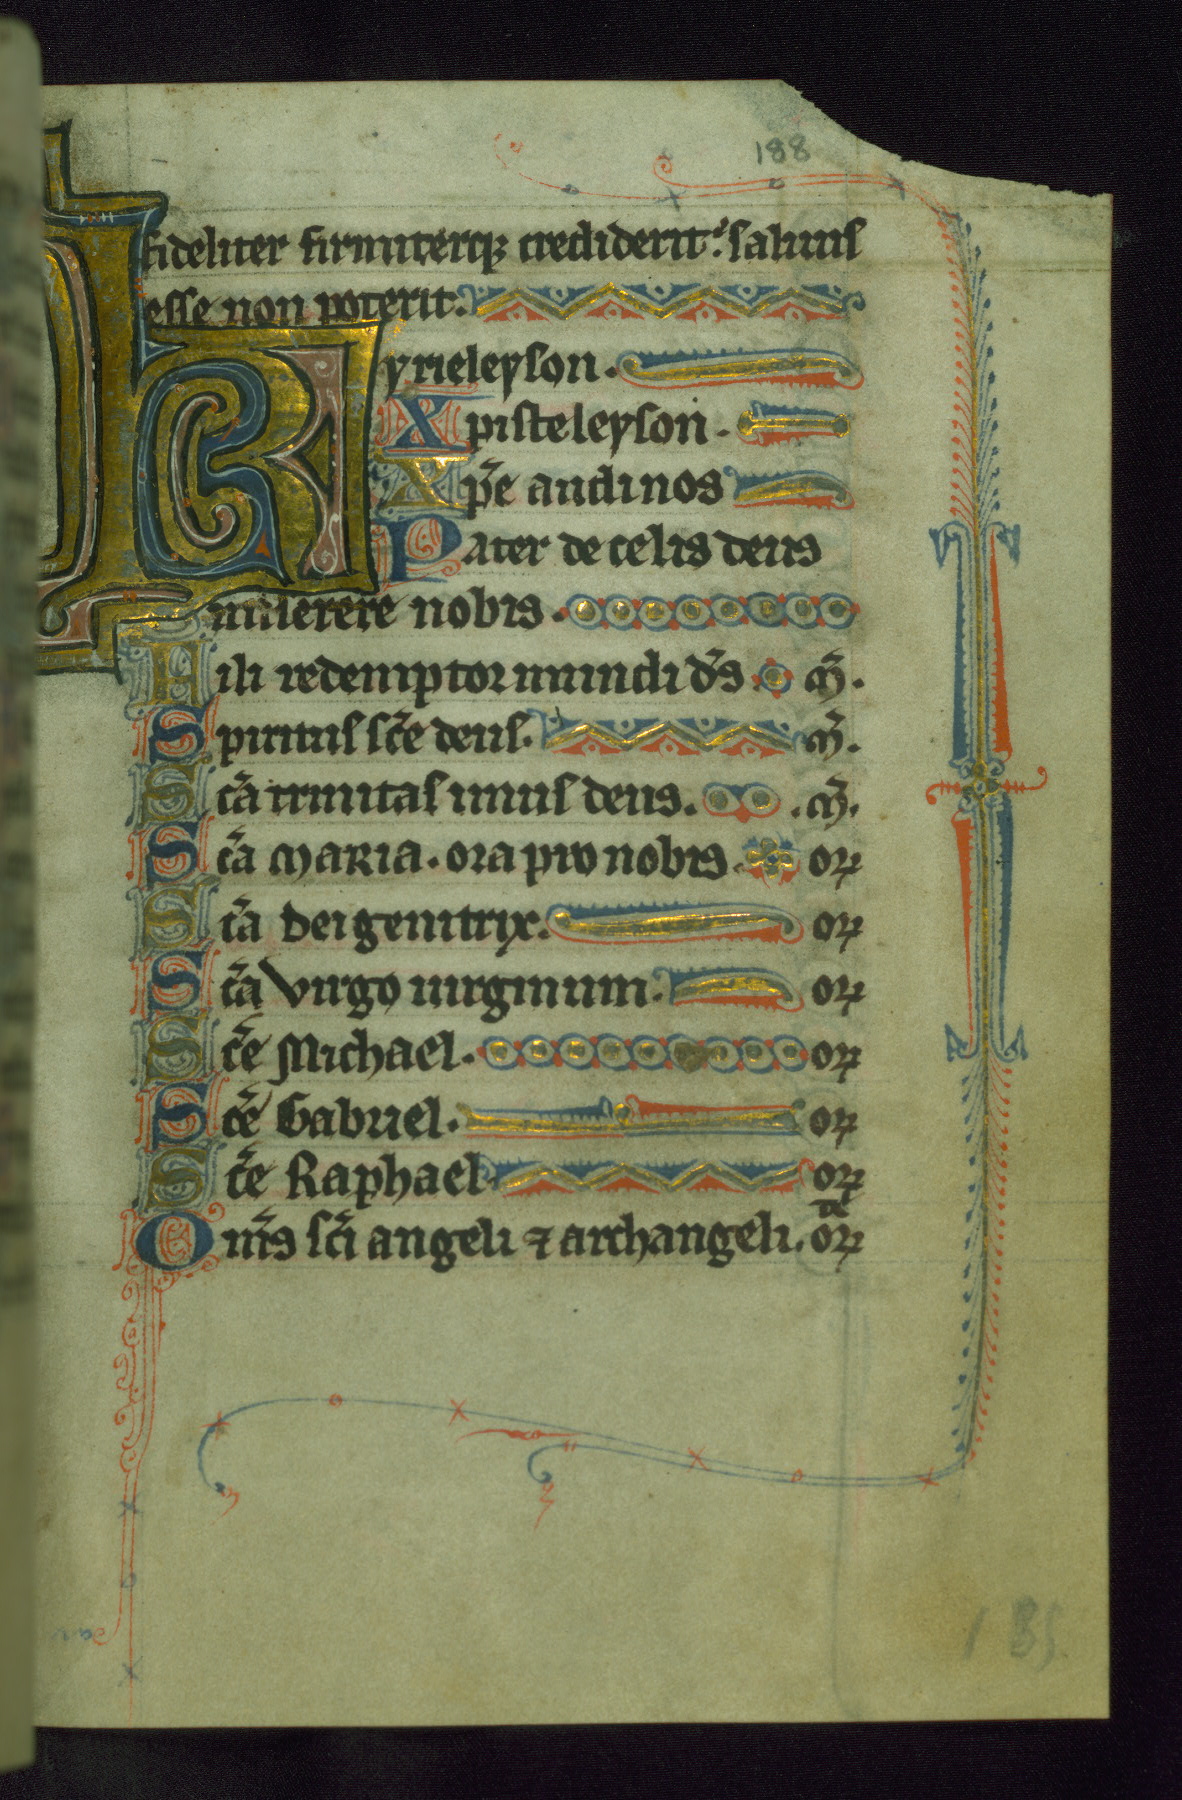 188
fideliter firmiterq; crediderit: saluus
esse non poterit.
Kyrieleyson.
Xpisteleyson.
Xp̄e audi nos
Pater de celis deus
miserere nobis.
Fili redemptor mundi d̄s. m̄.
Spiritus sc̄e deus. m̄.
Sc̄a trinitas unus deus. m̄.
Sc̄a maria. ora pro nobis. or
Sc̄a dei genitrix. or
Sc̄a virgo uirginum. or
Sc̄e Michael. or
Sc̄e Gabriel. or
Sc̄e Raphael. or
Om̄s sc̄i angeli ⁊ archangeli. or